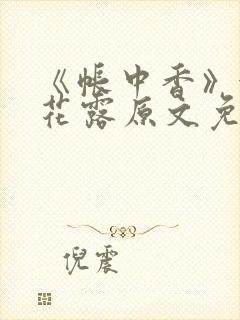 《帐中香》
花露原文免
倪震